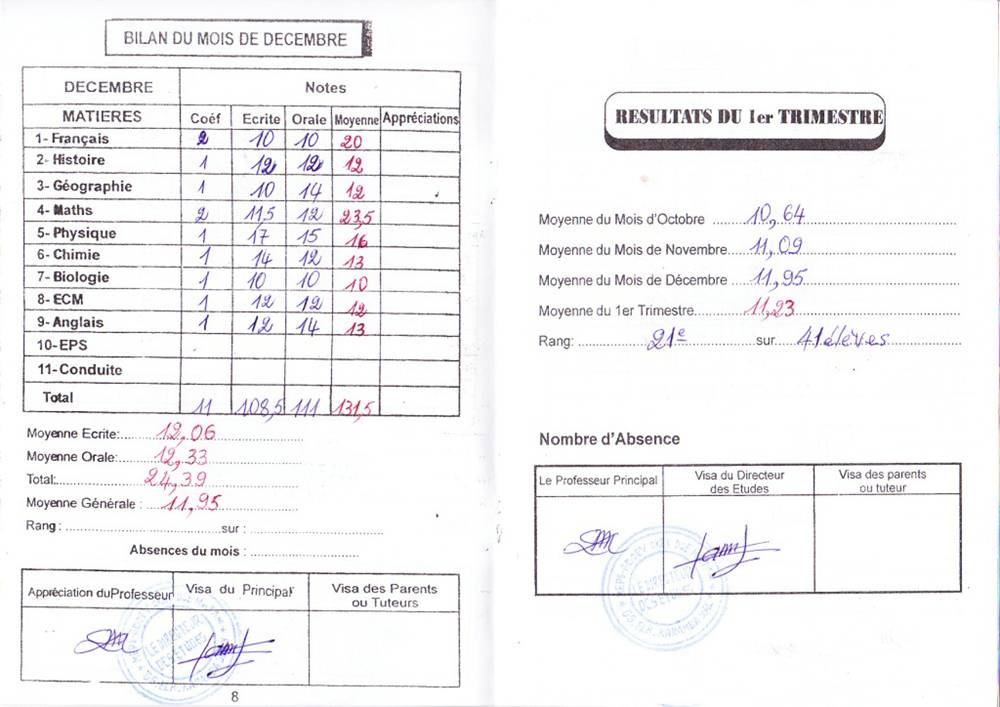 BILAN DU MOIS DE DECEMBRE
DECEMBRE Notes
MATIERES Coéf Ecrite Orale Moyenne Appréciations
1- Français 2 10 10 20
2- Histoire 1 12 12 12
3- Géographie 1 10 14 12
4- Maths 2 11,5 12 23,5
5- Physique 1 17 15 16
6- Chimie 1 14 12 13
7- Biologie 1 10 10 10
8- ECM 1 12 12 12
9- Anglais 1 12 14 13
10- EPS
11- Conduite
Total 11 108,5 111 131,5
Moyenne Ecrite: 12,06
Moyenne Orale: 12,33
Total: 24,39
Moyenne Générale : 11,95
Rang : sur :
Absences du mois :
Appréciation du Professeur Visa du Principal Visa des Parents ou Tuteurs
LE DIRECTEUR
DES ETUDES
8
RESULTATS DU 1er TRIMESTRE
Moyenne du Mois d'Octobre 10,64
Moyenne du Mois de Novembre 11,09
Moyenne du Mois de Décembre 11,95
Moyenne du 1er Trimestre 11,23
Rang: 21e sur 41 élèves
Nombre d'Absence
Le Professeur Principal Visa du Directeur des Etudes Visa des parents ou tuteur
LE DIRECTEUR
DES ETUDES